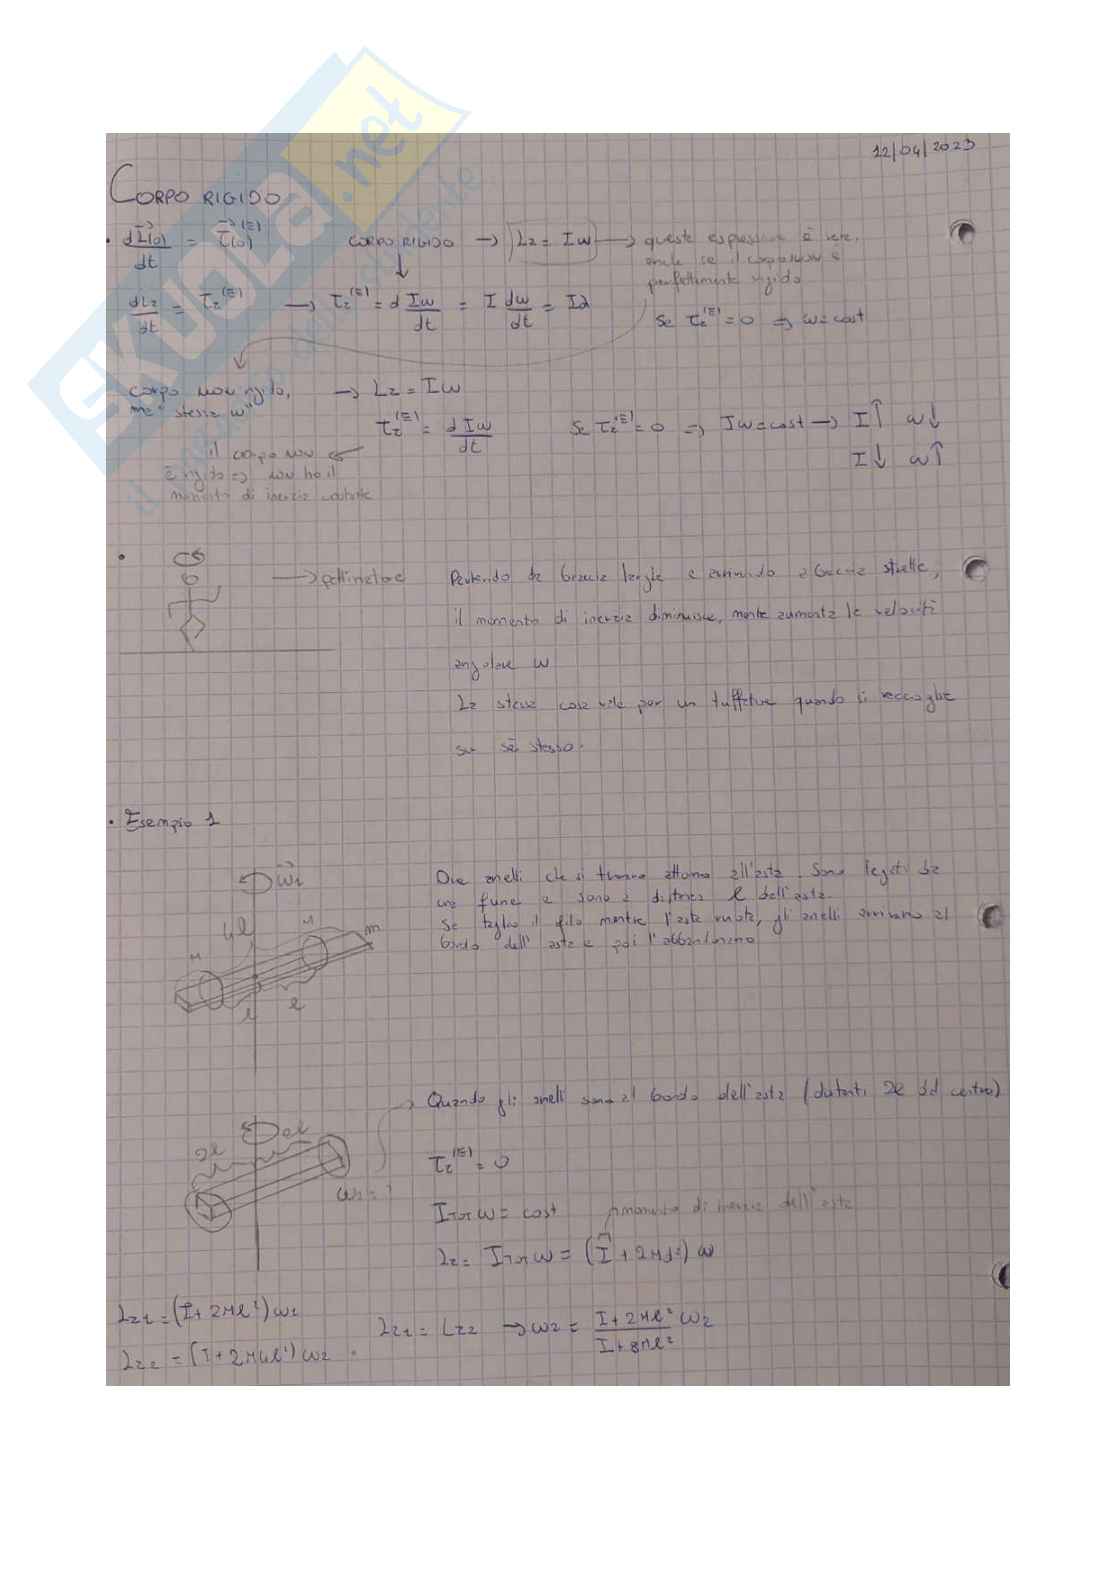 12/04/2023
CORPO RIGIDO
• dL(o)/dt = τ(o)^(E) CORPO RIGIDO → Lz = Iω → questa espressione è vera,
anche se il corpo non è
perfettamente rigido
dLz/dt = τz^(E) → τz^(E) = d Iω/dt = I dω/dt = Iα
Se τz^(E) = 0 ⇒ ω = cost
corpo non rigido, → Lz = Iω
ma "stessa ω"
τz^(E) = d Iω/dt Se τz^(E) = 0 ⇒ Iω = cost → I↑ ω↓
I↓ ω↑
il corpo non
è rigido ⇒ non ho il
momento di inerzia costante
• → pattinatore Partendo da braccia larghe e arrivando a braccia strette,
il momento di inerzia diminuisce, mentre aumenta la velocità
angolare ω
La stessa cosa vale per un tuffatore quando si raccoglie
su sé stesso.
• Esempio 1
ω1
Due anelli che si trovano attorno all'asta. Sono legati da
una fune e sono a distanza l dall'asta.
Se taglio il filo mentre l'asta ruota, gli anelli arrivano al
bordo dell'asta e poi l'abbandonano
4l
M
m
M
l
l
Quando gli anelli sono al bordo dell'asta (distanti 2l dal centro)
2l
2l
ω2 = ?
τz^(E) = 0
ITOT ω = cost momento di inerzia dell'asta
Lz = ITOT ω = (I + 2Md²) ω
Lz1 = (I + 2Ml²) ω1
Lz2 = (I + 2M4l²) ω2
Lz1 = Lz2 → ω2 = I + 2Ml²/I + 8Ml² ω2
SKUOLA.net